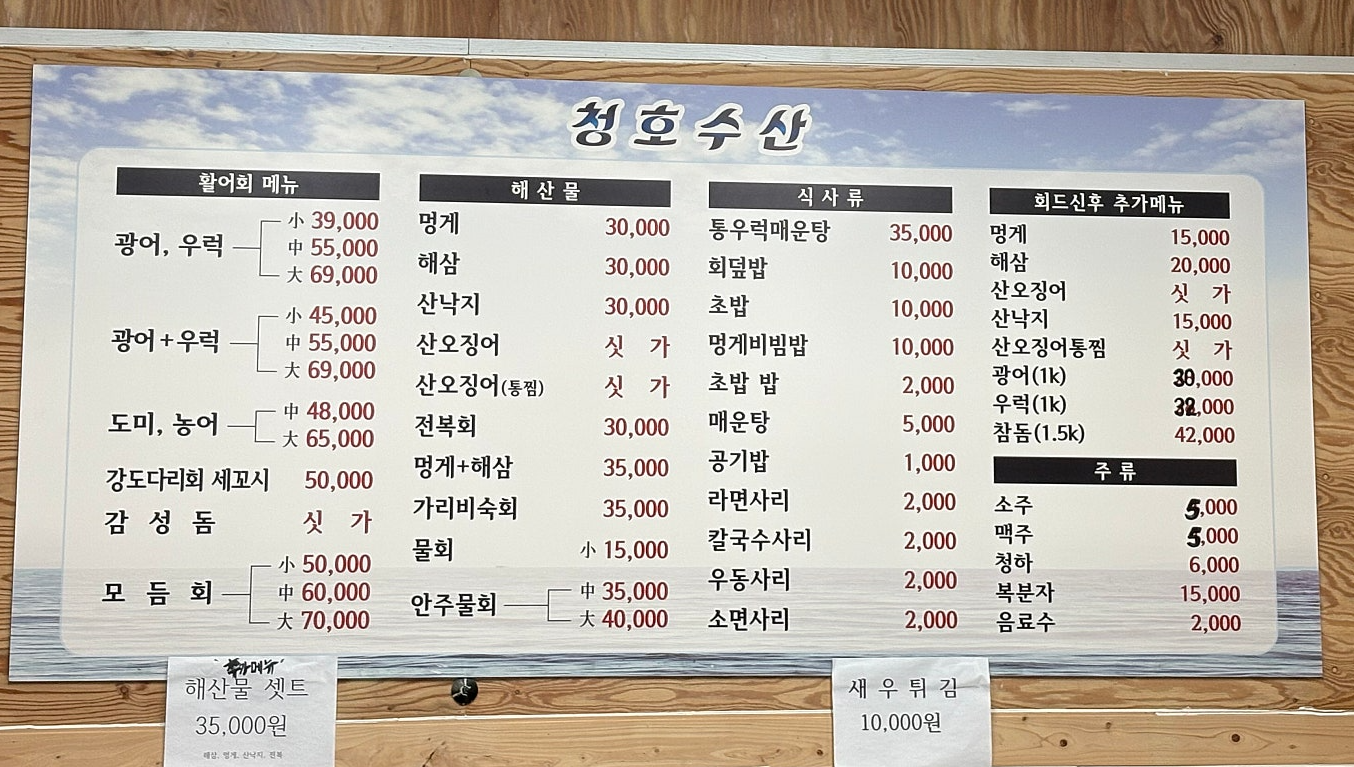 청호수산
활어회 메뉴
광어, 우럭
小 39,000
中 55,000
大 69,000
광어+우럭
小 45,000
中 55,000
大 69,000
도미, 농어
中 48,000
大 65,000
강도다리회 세꼬시 50,000
감 성 돔 싯 가
모 듬 회
小 50,000
中 60,000
大 70,000
해 산 물
멍게 30,000
해삼 30,000
산낙지 30,000
산오징어 싯 가
산오징어(통찜) 싯 가
전복회 30,000
멍게+해삼 35,000
가리비숙회 35,000
물회 小 15,000
안주물회
中 35,000
大 40,000
식 사 류
통우럭매운탕 35,000
회덮밥 10,000
초밥 10,000
멍게비빔밥 10,000
초밥 밥 2,000
매운탕 5,000
공기밥 1,000
라면사리 2,000
칼국수사리 2,000
우동사리 2,000
소면사리 2,000
회드신후 추가메뉴
멍게 15,000
해삼 20,000
산오징어 싯 가
산낙지 15,000
산오징어통찜 싯 가
광어(1k)
우럭(1k)
참돔(1.5k) 42,000
주 류
소주 5,000
맥주 5,000
청하 6,000
복분자 15,000
음료수 2,000
추가메뉴
해산물 셋트
35,000원
해삼, 멍게, 산낙지, 전복
새우튀김
10,000원